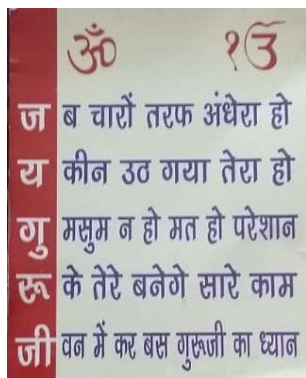 ॐ ੴ
जब चारों तरफ अंधेरा हो
यकीन उठ गया तेरा हो
गुमसुम न हो मत हो परेशान
रूके तेरे बनेगे सारे काम
जीवन में कर बस गुरूजी का ध्यान